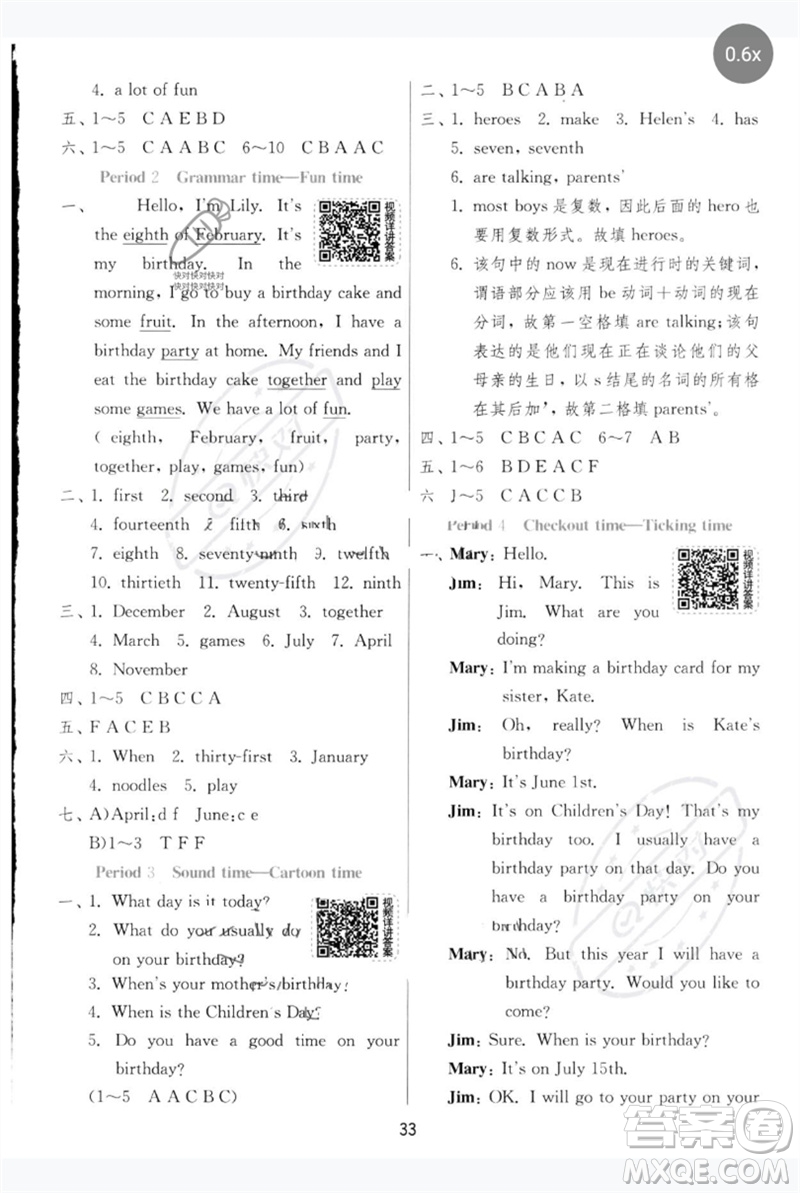 0.6x
4. a lot of fun
五、1～5 C A E B D
六、1～5 C A A B C 6～10 C B A A C
Period 2 Grammar time—Fun time
一、 Hello, I'm Lily. It's
the eighth of February. It's
my birthday. In the
morning, I go to buy a birthday cake and
some fruit. In the afternoon, I have a
birthday party at home. My friends and I
eat the birthday cake together and play
some games. We have a lot of fun.
( eighth, February, fruit, party,
together, play, games, fun)
视频详讲答案
快对快对快对
快对快对快对
二、1. first 2. second 3. third
4. fourteenth fifth 6. sixth
7. eighth 8. seventy-ninth 9. twelfth
10. thirtieth 11. twenty-fifth 12. ninth
三、1. December 2. August 3. together
4. March 5. games 6. July 7. April
8. November
四、1～5 C B C C A
五、F A C E B
六、1. When 2. thirty-first 3. January
4. noodles 5. play
七、A)April:d f June:c e
B)1～3 T F F
Period 3 Sound time—Cartoon time
一、1. What day is it today?
2. What do you usually do
on your birthday?
3. When's your mother's birthday?
4. When is the Children's Day?
5. Do you have a good time on your
birthday?
(1～5 A A C B C)
视频详讲答案
二、1～5 B C A B A
三、1. heroes 2. make 3. Helen's 4. has
5. seven, seventh
6. are talking, parents'
1. most boys 是复数，因此后面的 hero 也
要用复数形式。故填 heroes。
6. 该句中的 now 是现在进行时的关键词，
谓语部分应该用 be 动词＋动词的现在
分词，故第一空格填 are talking；该句
表达的是他们现在正在谈论他们的父
母亲的生日，以 s 结尾的名词的所有格
在其后加'，故第二格填 parents'。
四、1～5 C B C A C 6～7 A B
五、1～6 B D E A C F
六 1～5 C A C C B
Period 4 Checkout time—Ticking time
一、Mary: Hello.
Jim: Hi, Mary. This is
Jim. What are you
doing?
视频详讲答案
Mary: I'm making a birthday card for my
sister, Kate.
Jim: Oh, really? When is Kate's
birthday?
Mary: It's June 1st.
Jim: It's on Children's Day! That's my
birthday too. I usually have a
birthday party on that day. Do you
have a birthday party on your
birthday?
Mary: No. But this year I will have a
birthday party. Would you like to
come?
Jim: Sure. When is your birthday?
Mary: It's on July 15th.
Jim: OK. I will go to your party on your
33
答案圈
MXQE.COM